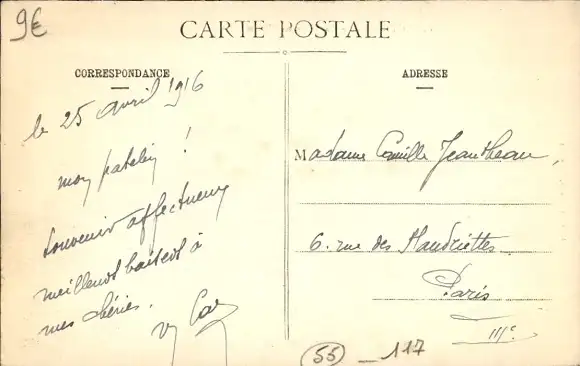 9€
CARTE POSTALE
CORRESPONDANCE
le 25 avril 1916
mon patelin !
souvenir affectueux
meilleurs baisers à
mes chéries.
ADRESSE
Madame Camille Jeantheau,
6. rue des Haudriettes
Paris
IIIe
55 _ 117